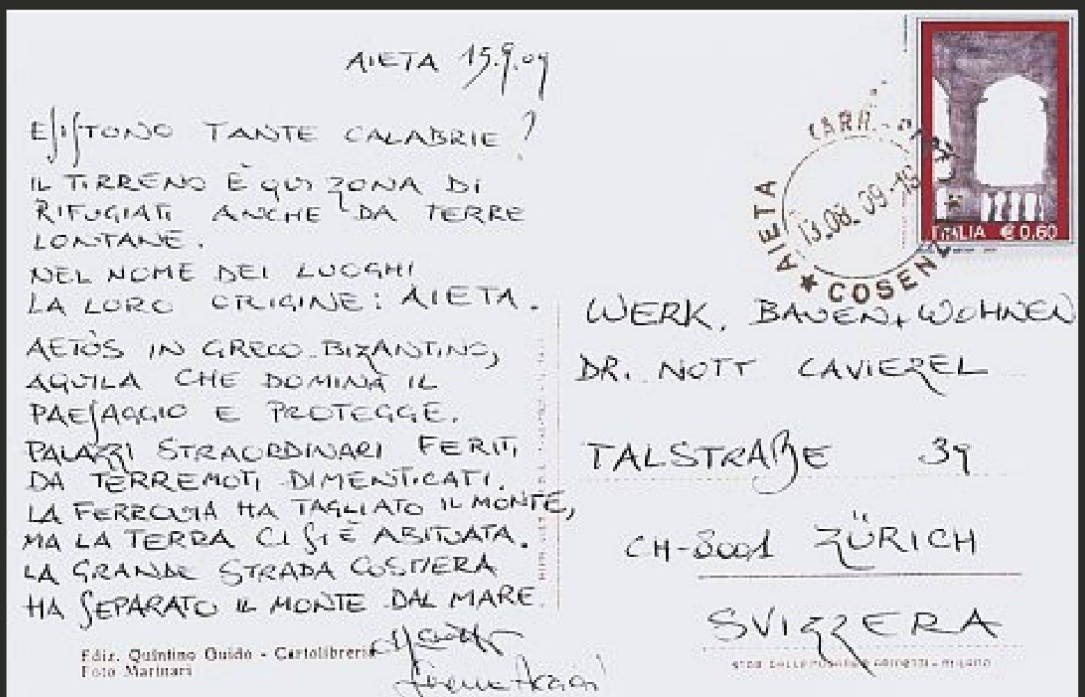 AIETA 15.9.09
ESISTONO TANTE CALABRIE?
IL TIRRENO È QUI ZONA DI
RIFUGIATI ANCHE DA TERRE
LONTANE.
NEL NOME DEI LUOGHI
LA LORO ORIGINE: AIETA.
AETÒS IN GRECO-BIZANTINO,
AQUILA CHE DOMINA IL
PAESAGGIO E PROTEGGE.
PALAZZI STRAORDINARI FERITI
DA TERREMOTI DIMENTICATI.
LA FERROVIA HA TAGLIATO IL MONTE,
MA LA TERRA CI SI È ABITUATA.
LA GRANDE STRADA COSTIERA
HA SEPARATO IL MONTE DAL MARE.
Ediz. Quintino Guido - Cartolibreria
Foto Marinari
AIETA
13.08.09-18
★ COSENZA
ITALIA € 0,60
WERK, BAUEN + WOHNEN
DR. NOTT CAVIEZEL
TALSTRAßE 39
CH-8001 ZÜRICH
SVIZZERA